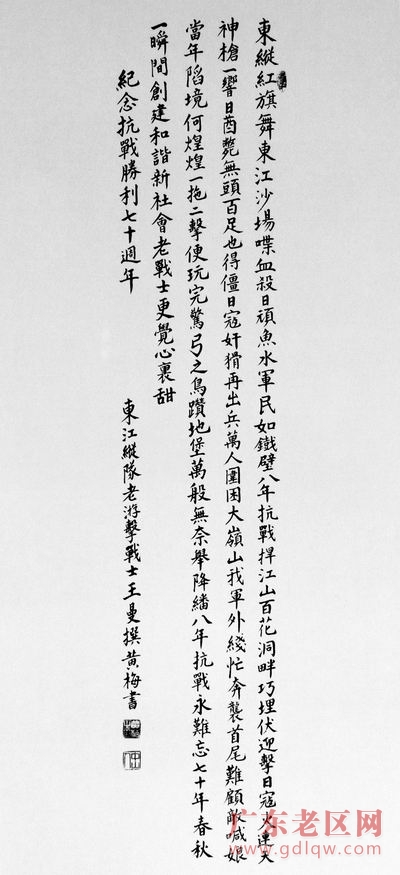 東縱紅旗舞東江沙場喋血殺日頑魚水軍民如鐵壁八年抗戰捍江山百花洞畔巧埋伏迎擊日寇火連天
神槍一響日酋斃無頭百足也得僵日寇奸猾再出兵萬人圍困大嶺山我軍外綫忙奔襲首尾難顧敵喊娘
當年滔境何煌煌一拖二擊便玩完驚弓之鳥躦地堡萬般無奈舉降繙八年抗戰永難忘七十年春秋
一瞬間創建和諧新社會老戰士更覺心裏甜
紀念抗戰勝利七十週年
東江縱隊老游擊戰士王曼撰黄梅書
广东老区网
www.gdlqw.com